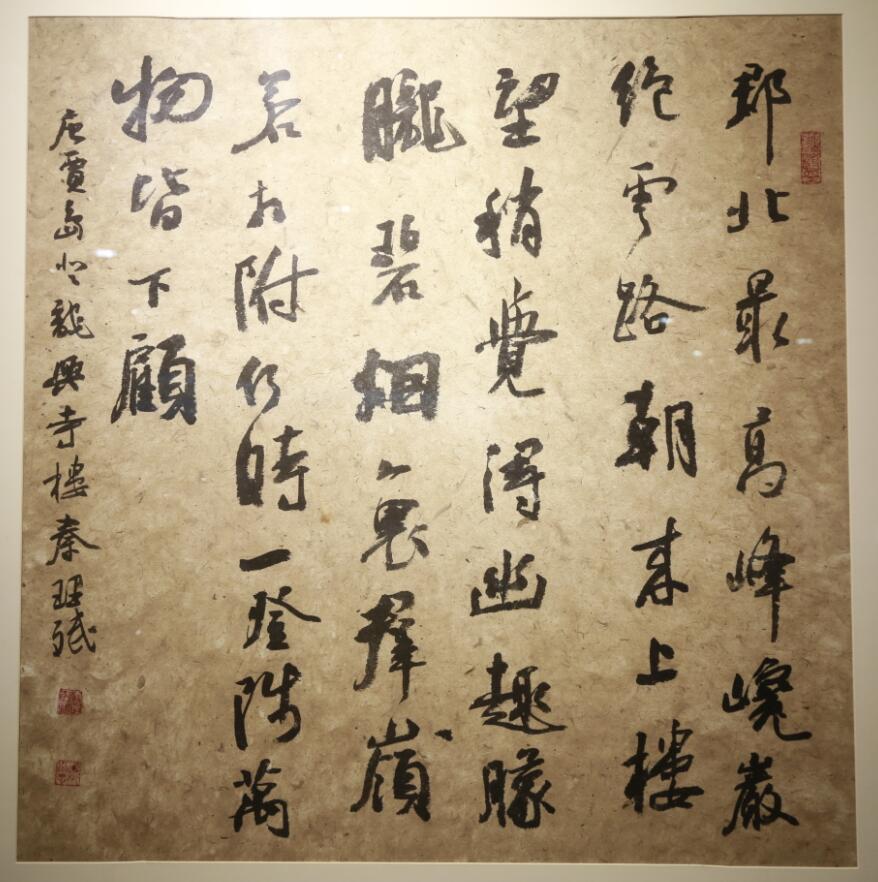 郡北最高峰巉巖
絶雲路朝来上樓
望稍覺得幽趣朦
朧碧烟裏羣嶺
若相附何時一登陟萬
物皆下顧
唐賈島登龍興寺樓秦